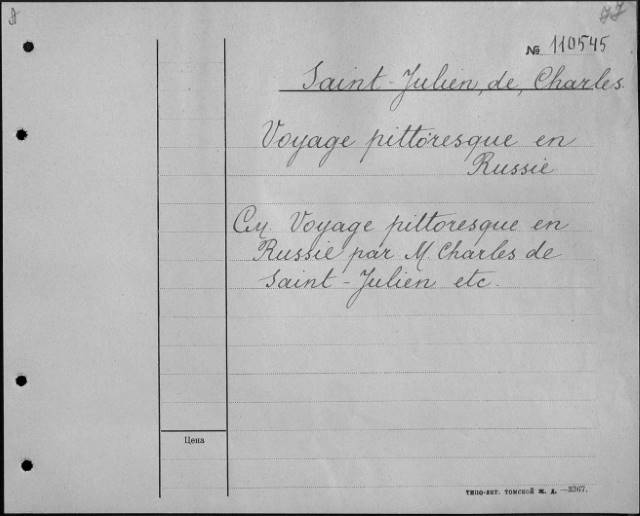 № 110545
Saint-Julien, de, Charles.
Voyage pittoresque en
Russie
См. Voyage pittoresque en
Russie par M. Charles de
Saint-Julien etc.
Цена
ТИПО-ЛИТ. ТОМСКОЙ Ж. Д. —3267.